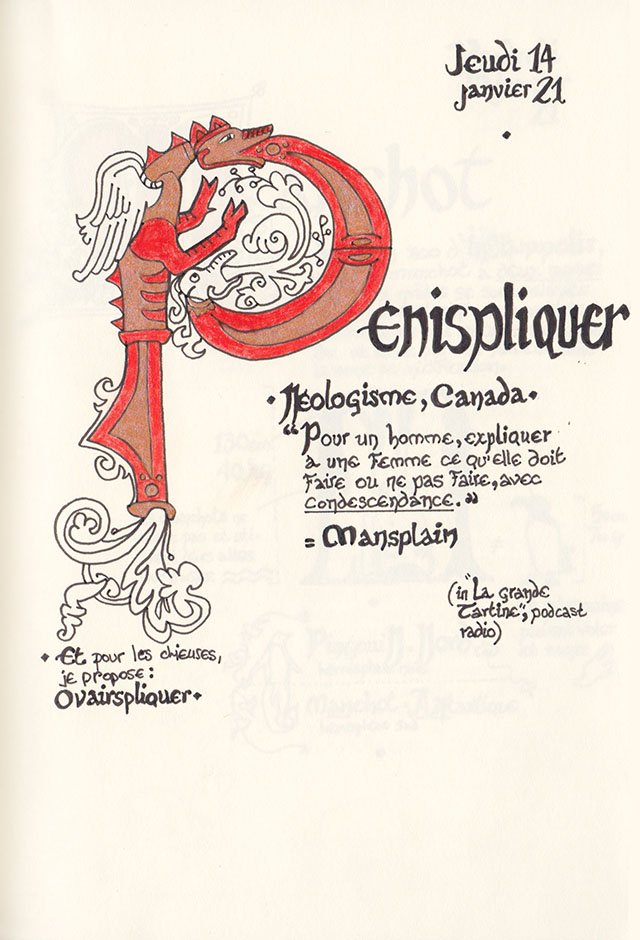 Jeudi 14
janvier 21
Penispliquer
• Néologisme, Canada •
“Pour un homme, expliquer
a une Femme ce qu'elle doit
Faire ou ne pas Faire, avec
condescendance.”
= Mansplain
(in "La grande
Tartine", podcast
radio)
• Et pour les chieuses,
je propose:
Ovairspliquer •